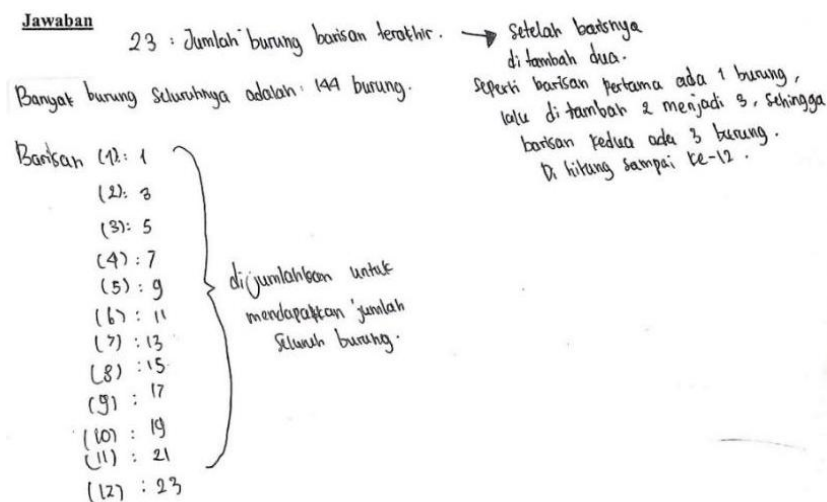 Jawaban
23 : Jumlah burung barisan terakhir. → setelah barisnya
di tambah dua.
seperti barisan pertama ada 1 burung,
lalu di tambah 2 menjadi 3, sehingga
barisan kedua ada 3 burung.
Di hitung sampai ke-12.
Banyak burung seluruhnya adalah: 144 burung.
Barisan (1): 1
(2): 3
(3): 5
(4) : 7
(5) : 9
(6) : 11
(7) : 13
(8) : 15
(9) : 17
(10) : 19
(11) : 21
(12) : 23
dijumlahkan untuk
mendapatkan jumlah
seluruh burung.